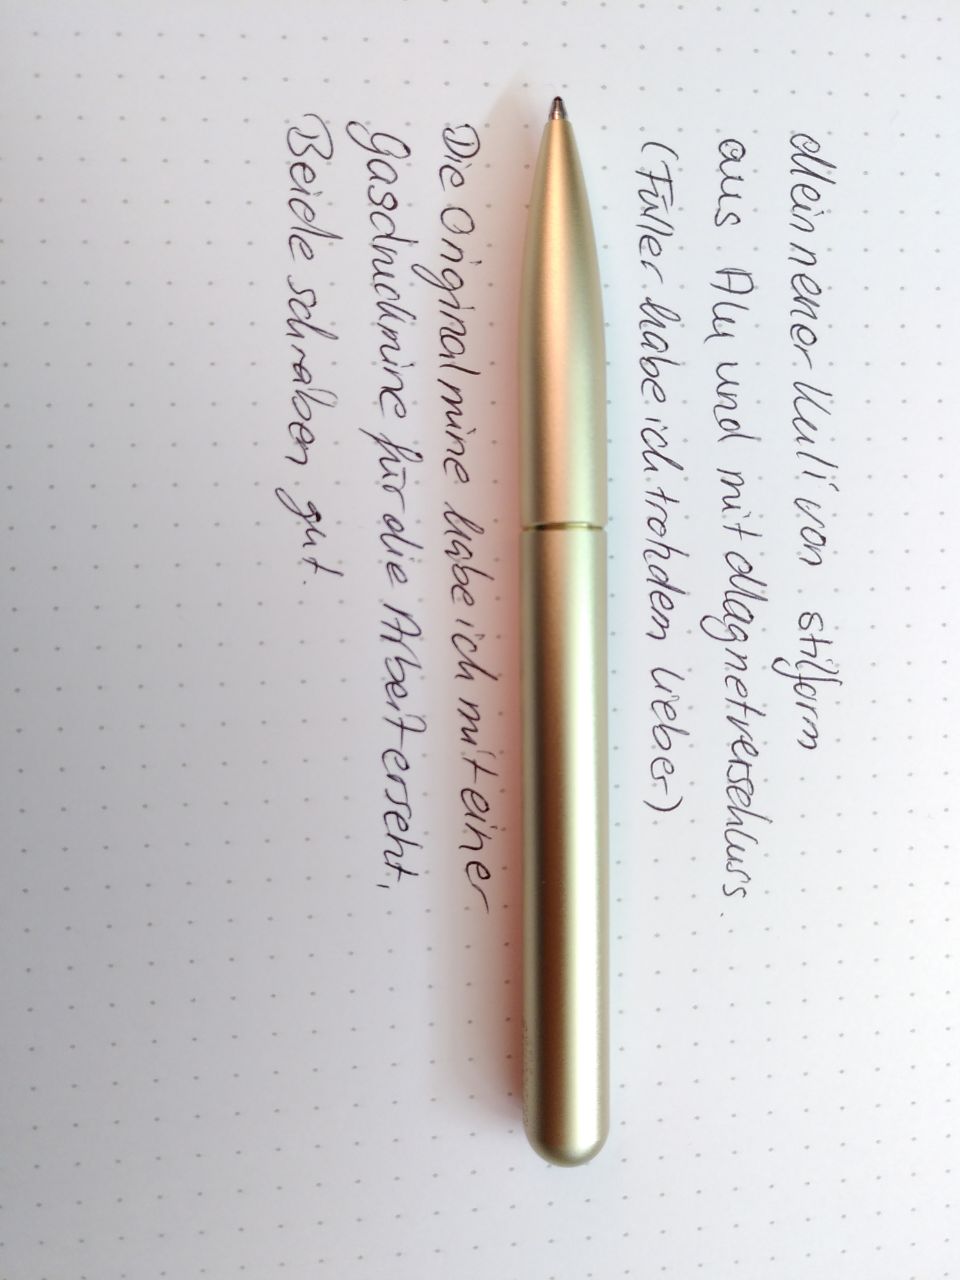 Mein neuer Kuli von stilform
aus Alu und mit Magnetverschluss.
(Füller habe ich trotzdem lieber)
Die Originalmine habe ich mit einer
Gasdruckmine für die Arbeit ersetzt.
Beide schreiben gut.